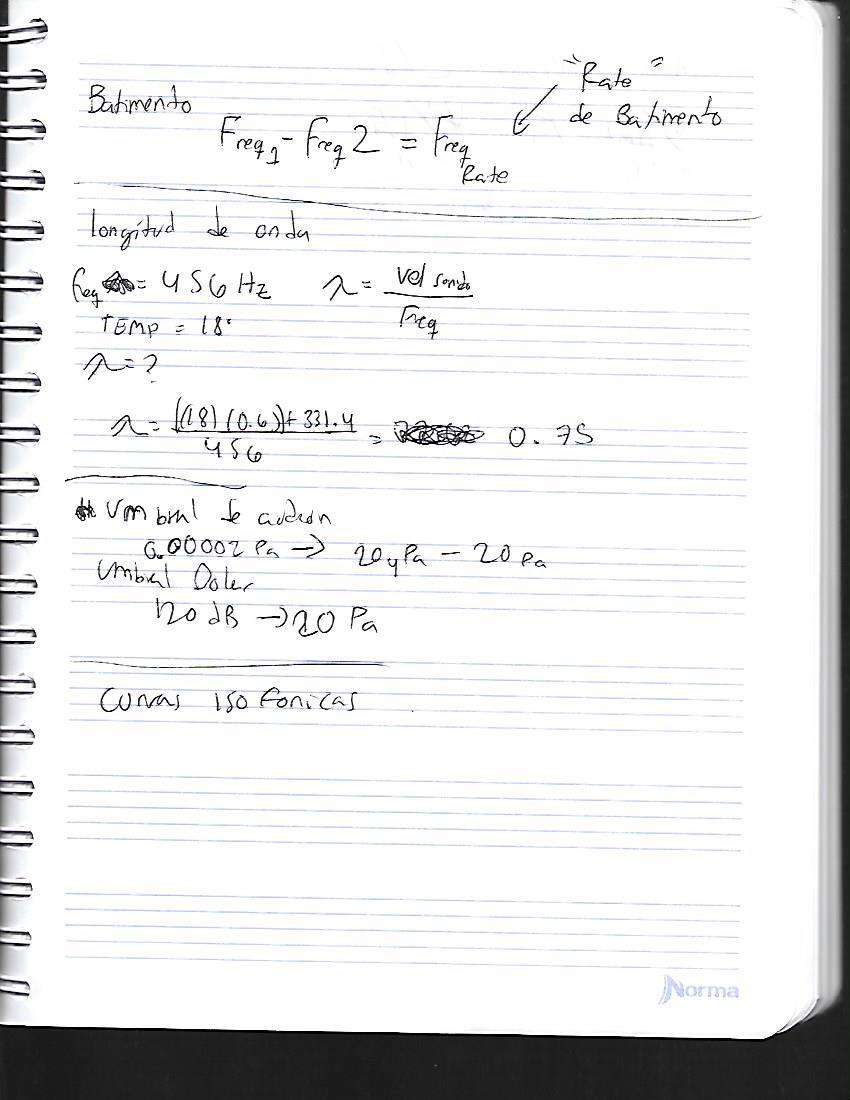 "Rate"
de Batimento
Batimento
Freq1 - Freq 2 = Freq Rate
longitud de onda
freq = 456 Hz λ = vel sonido / Freq
TEMP = 18°
λ = ?
λ = ((18)(0.6)) + 331.4 / 456 = 0.75
Umbral de
0.00002 Pa → 20 μPa - 20 Pa
Umbral Dolor
120 dB → 20 Pa
Curvas isofonicas
Norma